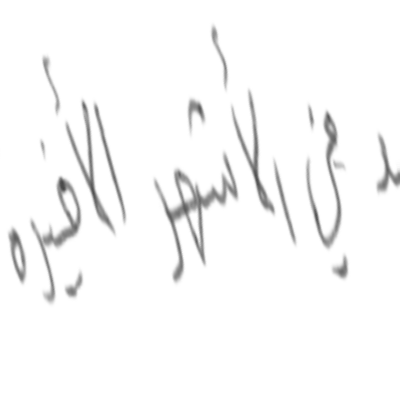 في الأشهر الأخيره